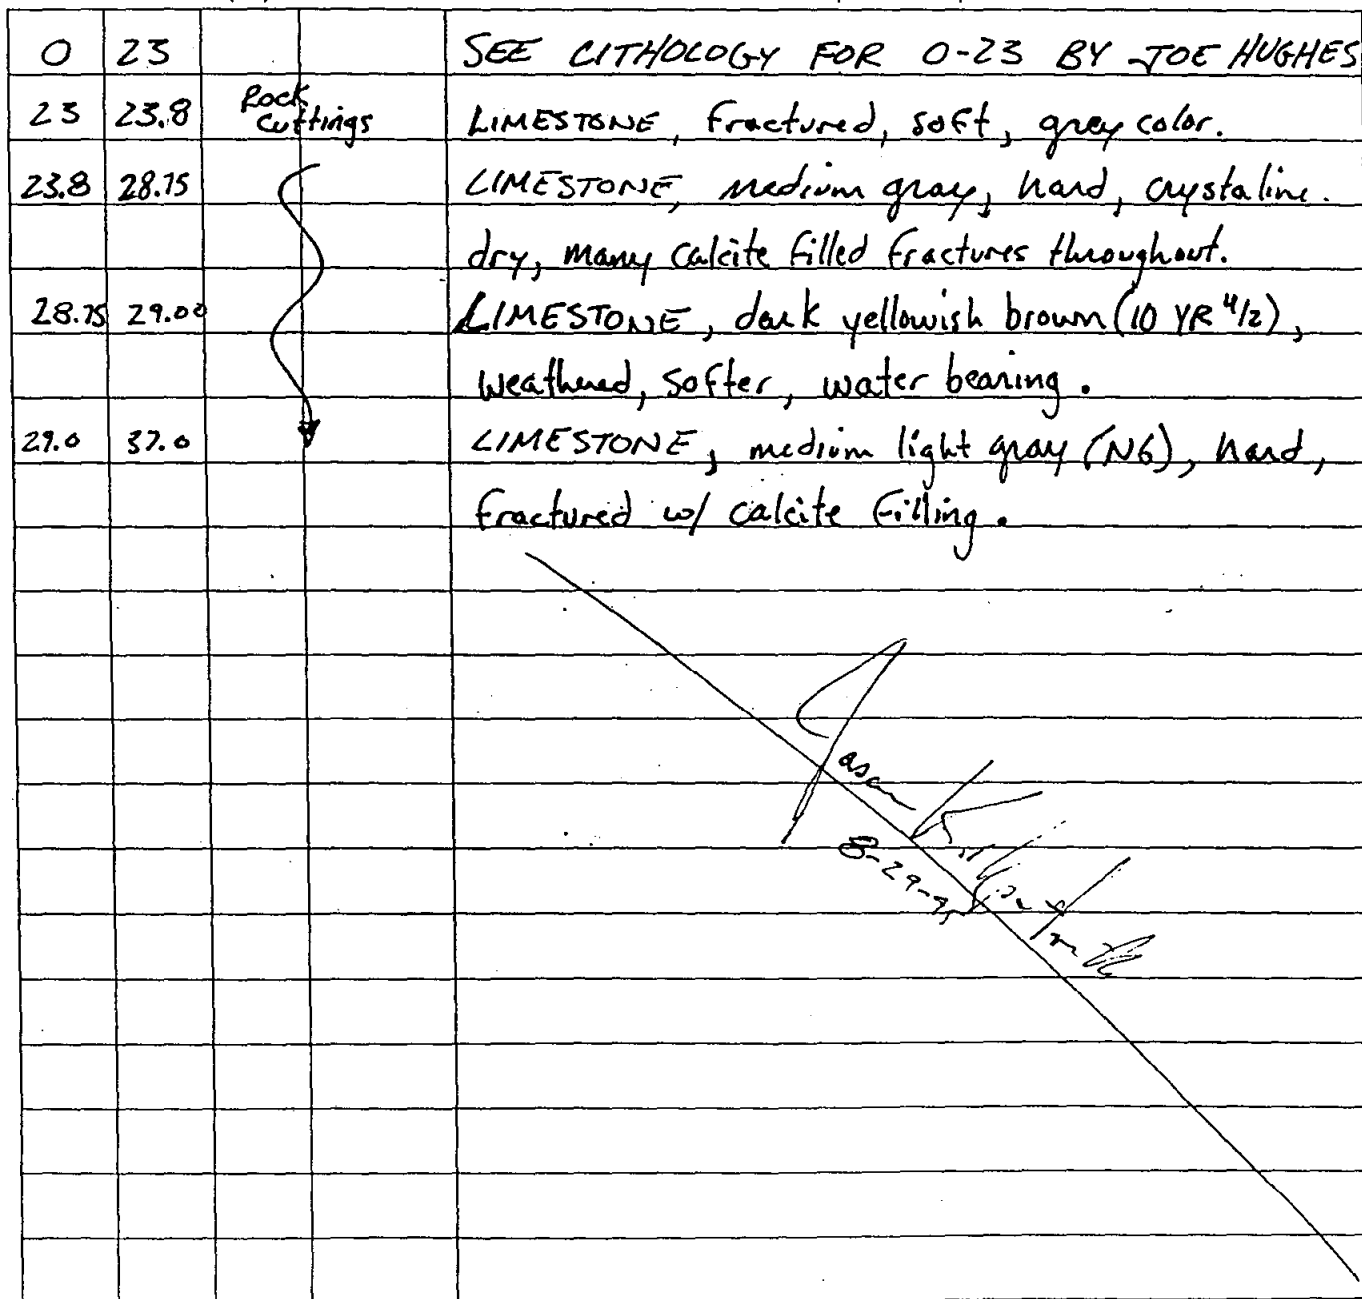 0 23 SEE LITHOLOGY FOR 0-23 BY JOE HUGHES
23 23.8 Rock Cuttings LIMESTONE, fractured, soft, grey color.
23.8 28.75 LIMESTONE, medium gray, hard, crystaline.
dry, many calcite filled fractures throughout.
28.75 29.00 LIMESTONE, dark yellowish brown (10 YR 4/2),
weathered, softer, water bearing.
29.0 37.0 LIMESTONE, medium light gray (N6), hard,
fractured w/ calcite filling.
Jason
8-29-95